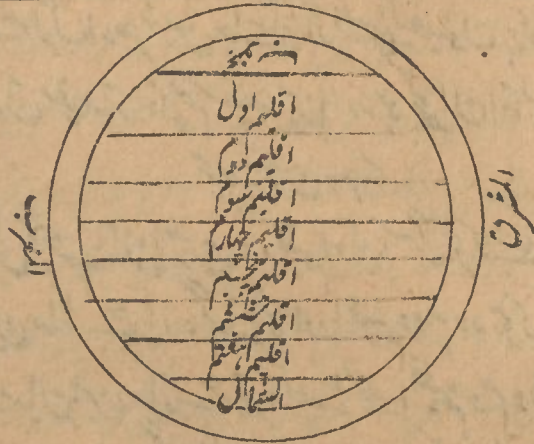 اقلیم اول
اقلیم دوم
اقلیم سوم
اقلیم چهارم
اقلیم پنجم
اقلیم ششم
اقلیم هفتم
الشمال
الشرق